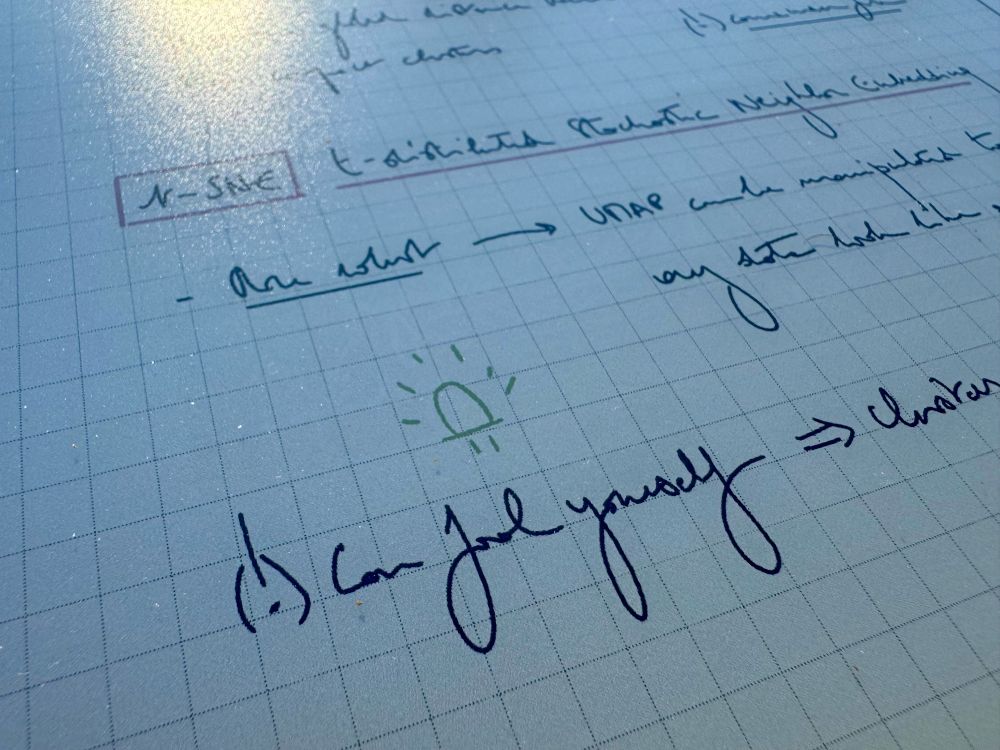 clusters
(!)
N-SNE t-distributed Stochastic Neighbor Embedding
- More robust → UMAP can be manipulated to
any data look like
(!) Can fool yourself ⇒ clusters